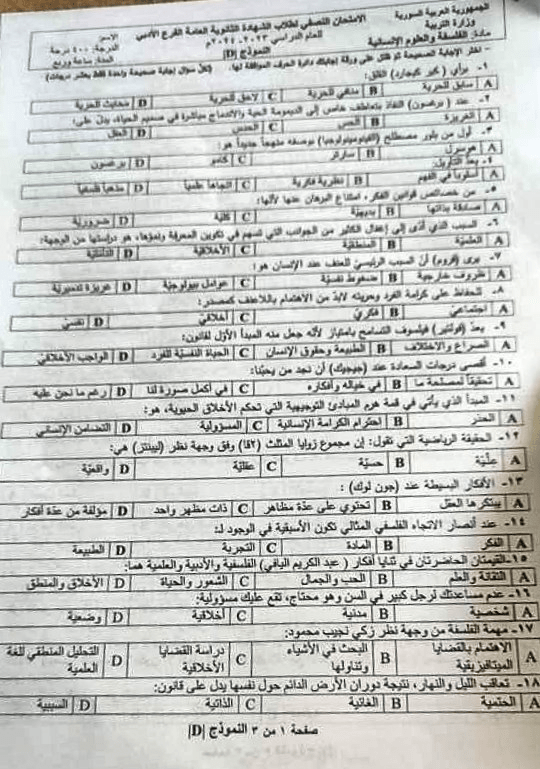 الجمهورية العربية السورية
وزارة التربية
مادة: الفلسفة والعلوم الإنسانية
الامتحان النصفي لطلاب الشهادة الثانوية العامة الفرع الأدبي
للعام الدراسي ٢٠٢٣-٢٠٢٤م
النموذج |D|
الاسم:
الدرجة: ٤٠٠ درجة
المدة: ساعة وربع
- اختر الإجابة الصحيحة ثم ظلل على ورقة إجابتك دائرة الحرف الموافقة لها. (لكل سؤال إجابة صحيحة واحدة فقط بعشر درجات)
١- برأي (كير كيجارد) القلق:
A سابق للحرية B منافي للحرية C لاحق للحرية D محايث للحرية
٢- عند (برغسون) النفاذ بتعاطف خاص إلى الديمومة الحية والاندماج مباشرة في صميم الحياة، يدل على:
A الغريزة B الحس C الحدس D العقل
٣- أول من بلور مصطلح (الفينومينولوجيا) بوصفه منهجاً جديداً هو:
A هوسرل B سارتر C كامو D برغسون
٤- يعدّ التأويل:
A أسلوباً في الفهم B نظرية فكرية C اتجاهاً علمياً D مذهباً فلسفياً
٥- من خصائص قوانين الفكر، امتناع البرهان عنها لأنها:
A صادقة بذاتها B بديهية C كلية D ضرورية
٦- السبب الذي أدى إلى إغفال الكثير من الجوانب التي تسهم في تكوين المعرفة ونموها، هو دراستها من الوجهة:
A العلمية B المنطقية C الأخلاقية D الذاتية
٧- يرى (فروم) أن السبب الرئيسي للعنف عند الإنسان هو:
A ظروف خارجية B ضغوط نفسية C عوامل بيولوجية D غريزة تدميرية
٨- للحفاظ على كرامة الفرد وحريته لابدّ من الاهتمام باللاعنف كمصدر:
A اجتماعي B فكري C أخلاقي D نفسي
٩- يعدّ (فولتير) فيلسوف التسامح بامتياز لأنه جعل منه المبدأ الأول لقانون:
A الصراع والاختلاف B الطبيعة وحقوق الإنسان C الحياة النفسية للفرد D الواجب الأخلاقي
١٠- أقصى درجات السعادة عند (جيجيك) أن نجد من يحبنا:
A تحقيقاً لمصلحة ما B في خياله وأفكاره C في أكمل صورة لنا D رغم ما نحن عليه
١١- المبدأ الذي يأتي في قمة هرم المبادئ التوجيهية التي تحكم الأخلاق الحيوية، هو:
A الحذر B احترام الكرامة الإنسانية C المسؤولية D التضامن الإنساني
١٢- الحقيقة الرياضية التي تقول: إن مجموع زوايا المثلث (٢ق) وفق وجهة نظر (ليبنتز) هي:
A علّيّة B حسيّة C عقليّة D واقعيّة
١٣- الأفكار البسيطة عند (جون لوك):
A يبتكرها العقل B تحتوي على عدّة مظاهر C ذات مظهر واحد D مؤلفة من عدّة أفكار
١٤- عند أنصار الاتجاه الفلسفي المثالي تكون الأسبقية في الوجود لـ:
A الفكر B المادة C التجربة D الطبيعة
١٥-القيمتان الحاضرتان في ثنايا أفكار (عبد الكريم اليافي) الفلسفية والأدبية والعلمية هما:
A الثقافة والعلم B الحب والجمال C الشعور والحياة D الأخلاق والمنطق
١٦- عدم مساعدتك لرجل كبير في السن وهو محتاج، تقع عليك مسؤولية:
A شخصية B مدنية C أخلاقية D وضعية
١٧- مهمة الفلسفة من وجهة نظر زكي نجيب محمود:
A الاهتمام بالقضايا الميتافيزيقية B البحث في الأشياء وتناولها C دراسة القضايا الأخلاقية D التحليل المنطقي للغة العلمية
١٨- تعاقب الليل والنهار، نتيجة دوران الأرض الدائم حول نفسها يدل على قانون:
A الحتمية B الغائية C الذاتية D السببية
صفحة ١ من ٣ النموذج |D|